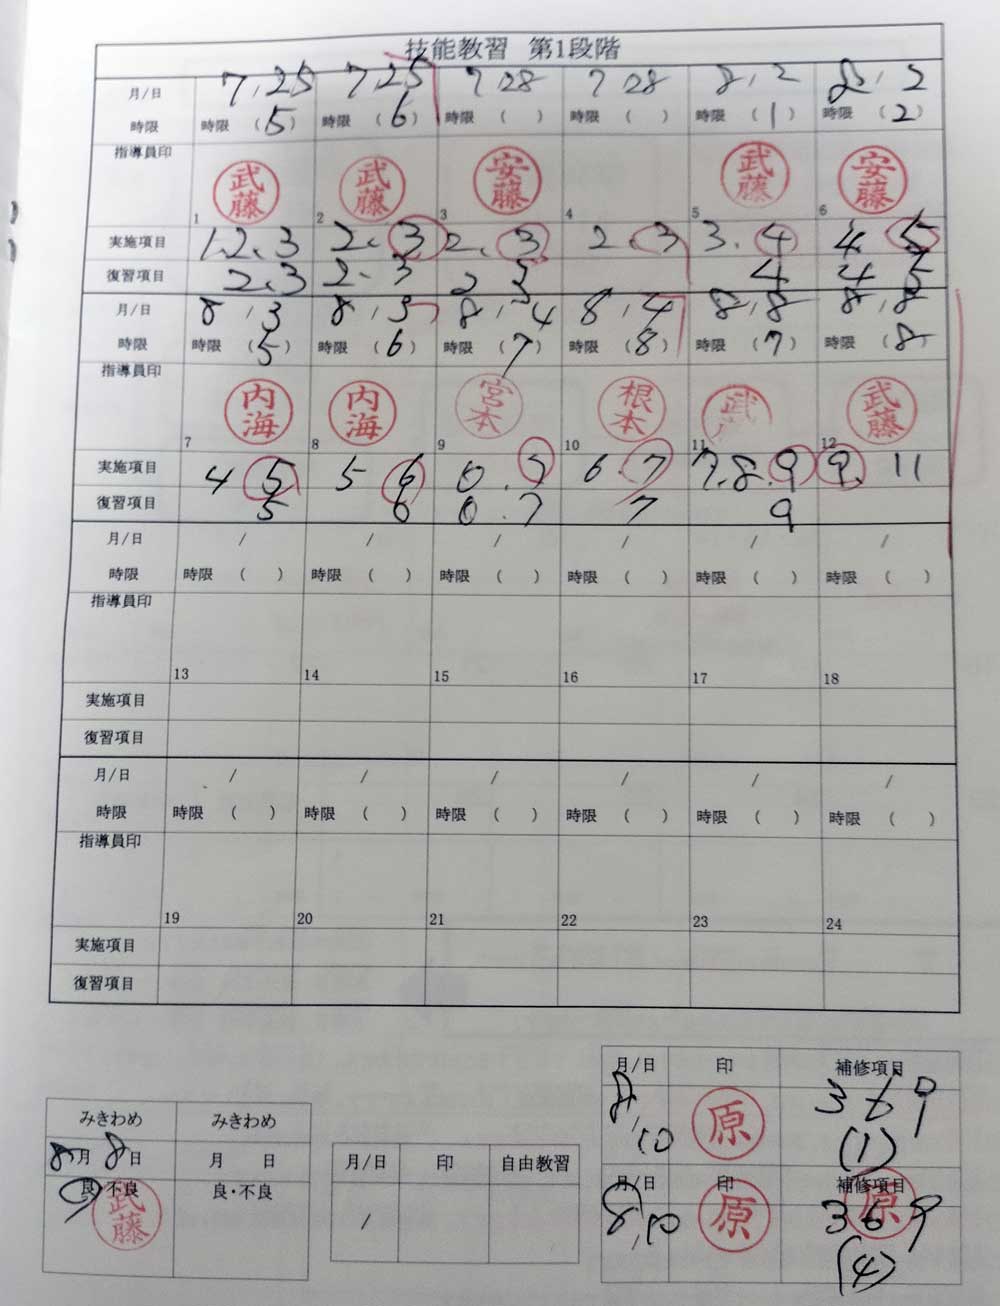 技能教習 第1段階
月/日 7.25 7.25 7.28 7.28 8.2 8.2
時限 時限 (5) 時限 (6) 時限 ( ) 時限 ( ) 時限 (1) 時限 (2)
指導員印 武藤 武藤 安藤 武藤 安藤
1 2 3 4 5 6
実施項目 1.2.3 2.3 2.3 2.3 3.4 4.5
復習項目 2.3 2.3 2 3 4 4 5
月/日 8.3 8.3 8.4 8.4 8.8 8.8
時限 時限 (5) 時限 (6) 時限 (7) 時限 (8) 時限 (7) 時限 (8)
指導員印 内海 内海 宮本 根本 武 武藤
7 8 9 10 11 12
実施項目 4 5 5 6 6.7 6.7 7.8.9 9.11
復習項目 5 6 6.7 7 9
月/日 / / / / / /
時限 時限 ( ) 時限 ( ) 時限 ( ) 時限 ( ) 時限 ( ) 時限 ( )
指導員印
13 14 15 16 17 18
実施項目
復習項目
月/日 / / / / / /
時限 時限 ( ) 時限 ( ) 時限 ( ) 時限 ( ) 時限 ( ) 時限 ( )
指導員印
19 20 21 22 23 24
実施項目
復習項目
みきわめ みきわめ
8月 8日 月 日
良・不良 良・不良
武藤
月/日 印 自由教習
/
月/日 印 補修項目
8.10 原 3 6 9
(1)
月/日 印 補修項目
8.10 原 原 3 6 9
(4)